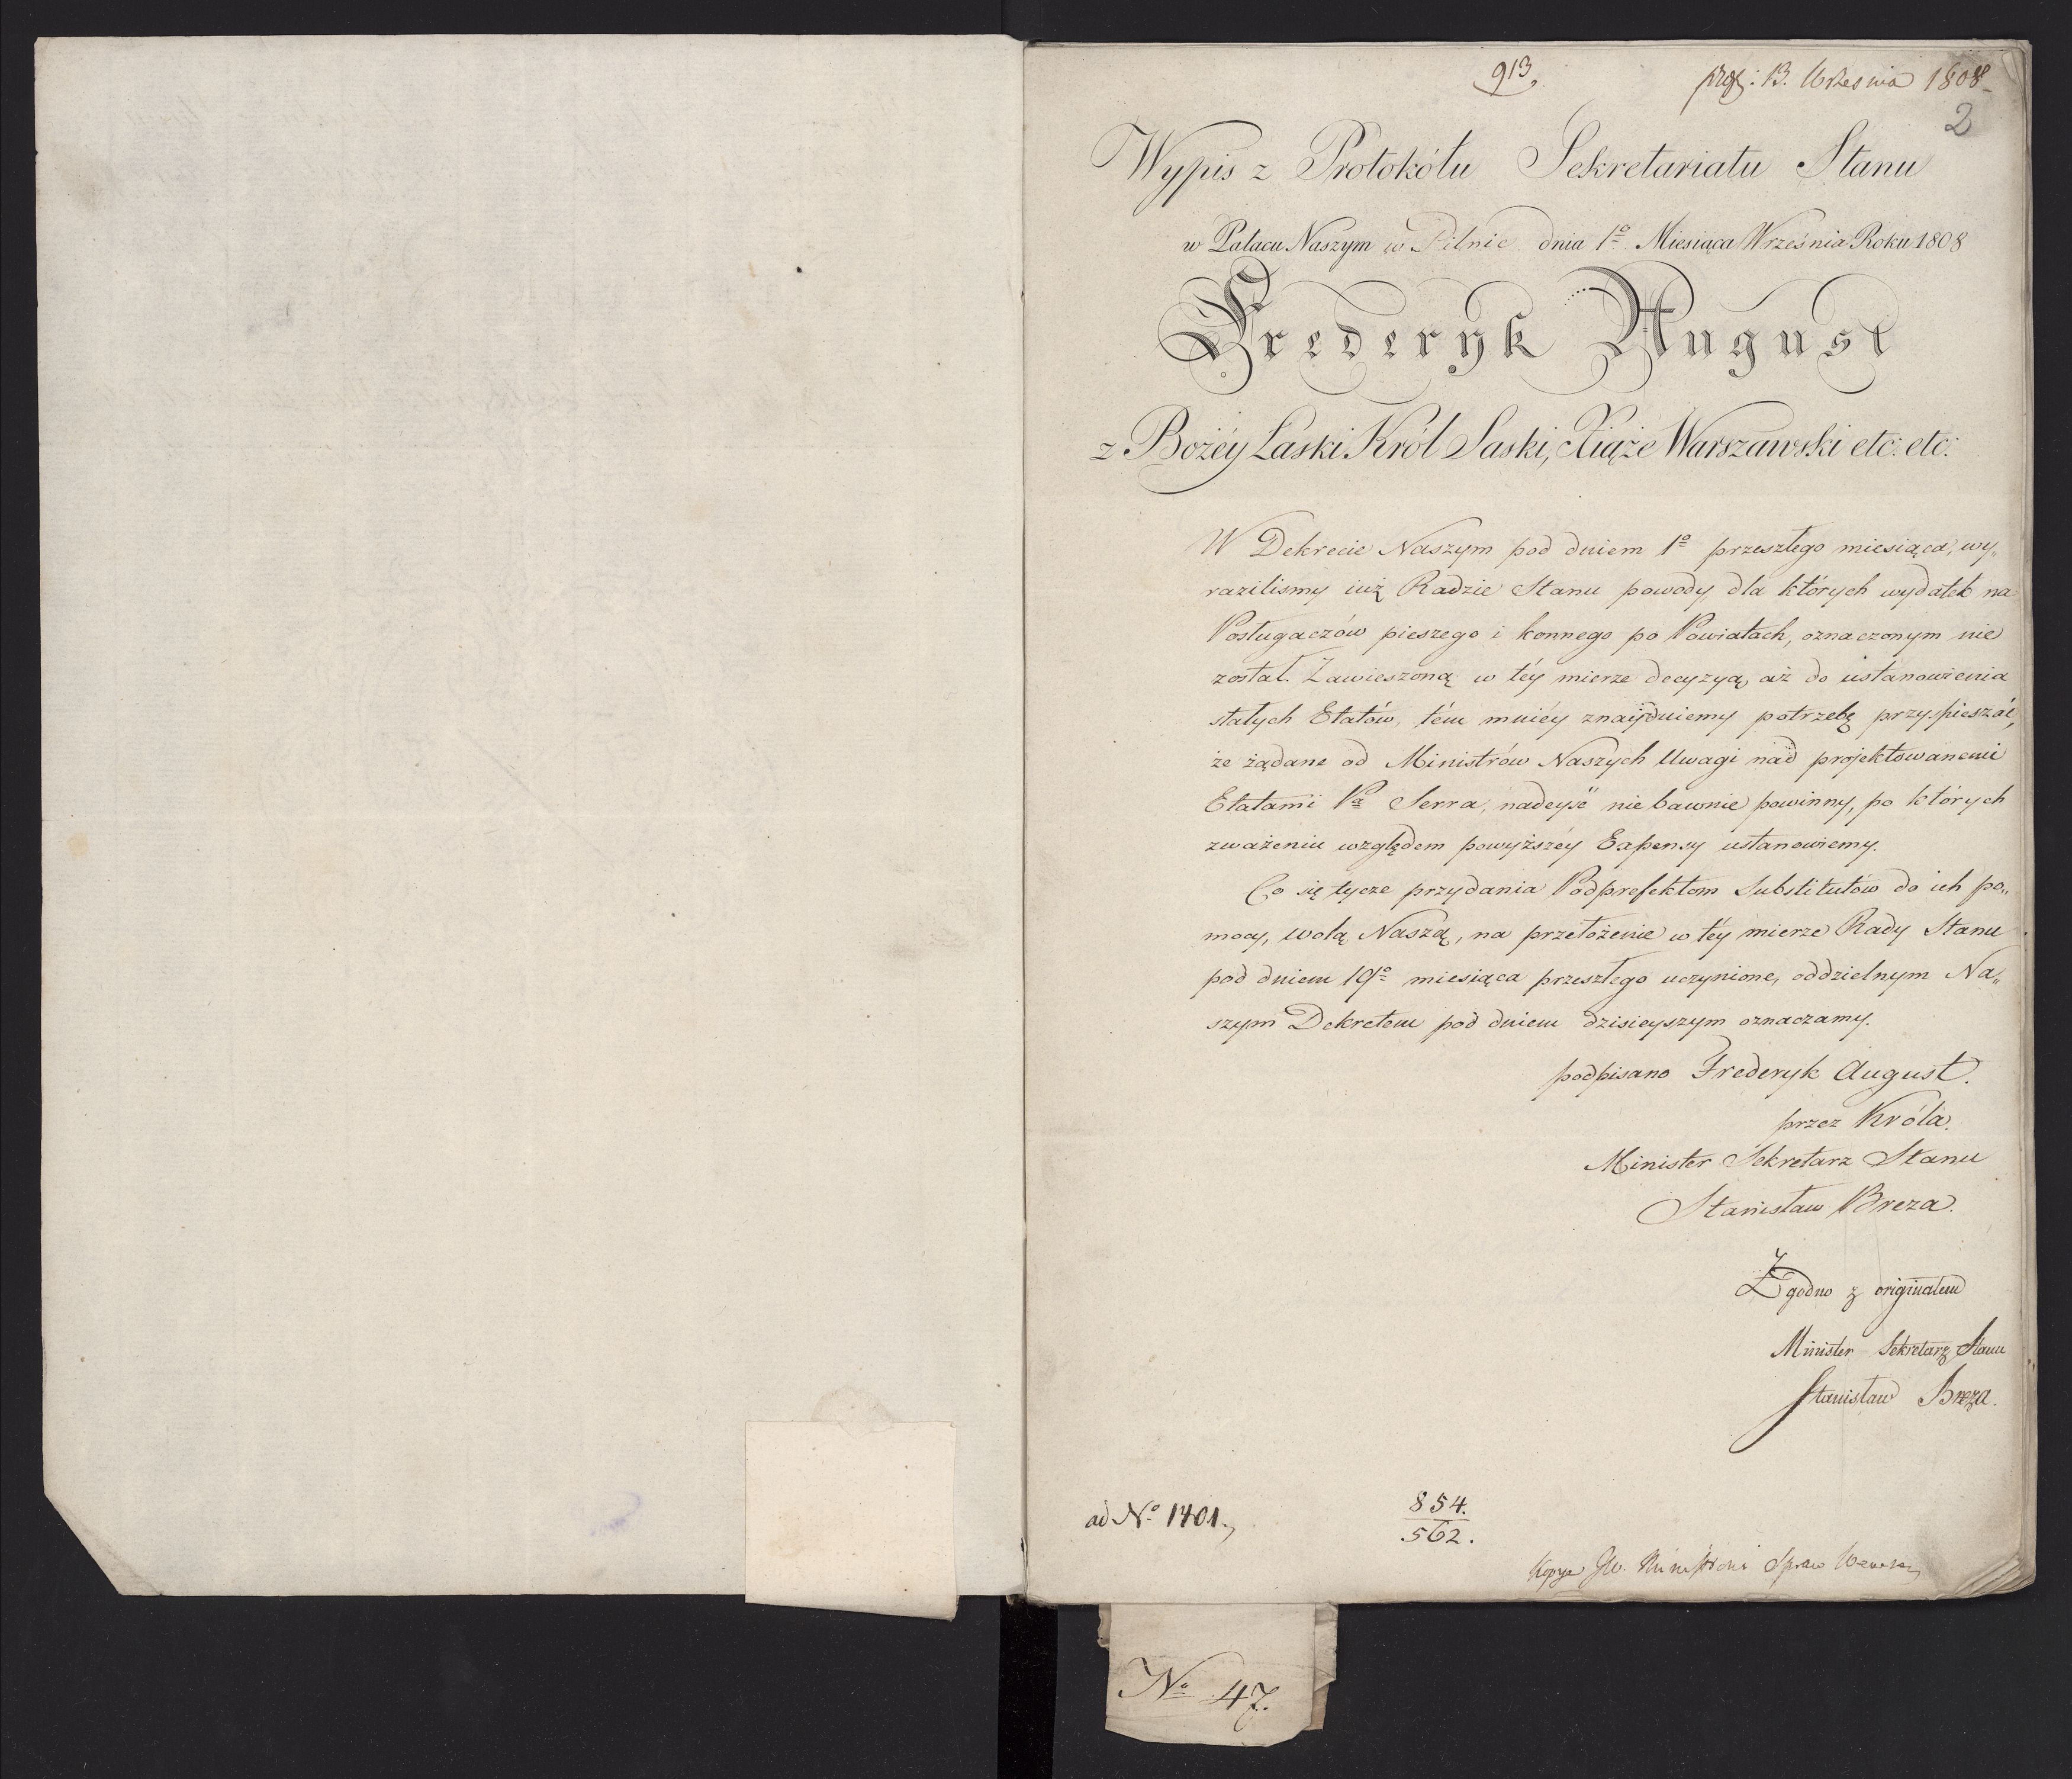 913.
prez: 13. Września 1808
2
Wypis z Protokółu Sekretariatu Stanu
w Pałacu Naszym w Pilnic dnia 1º Miesiąca Września Roku 1808
Frederyk August
z Bożéy Łaski Król Saski, Xiąże Warszawski etc: etc:
W Dekrecie Naszym pod dniem 1º przeszłego miesiąca, wy„
razilismy iuż Radzie Stanu powody, dla których wydatek na
Posługaczów pieszego i konnego po Powiatach, oznaczonym nie
został. Zawieszoną w téy mierze decyzyą, aż do ustanowienia
stałych Etatów, tém mniéy znayduiemy potrzebę przyspieszać,
że żądane od Ministrów Naszych Uwagi nad projektowanemi
Etatami Pª Serra, nadeyść niebawnie powinny, po których
zważeniu względem powyższéy Expensy ustanowiemy.
Co się tycze przydania Podprefektom Substitutów do ich po„
mocy, wolą Naszą, na przełożenie w téy mierze Rady Stanu
pod dniem 19º miesiąca przeszłego uczynione, oddzielnym Na„
szym Dekretem pod dniem dzisieyszym oznaczamy.
podpisano Frederyk August.
przez Króla.
Minister Sekretarz Stanu
Stanisław Breza.
Zgodno z originałem
Minister Sekretarz Stanu
Stanisław Breza.
ad Nº 1401.
854.
562.
Kopya JW. Ministrowi Spraw Wewn
Nº 47.